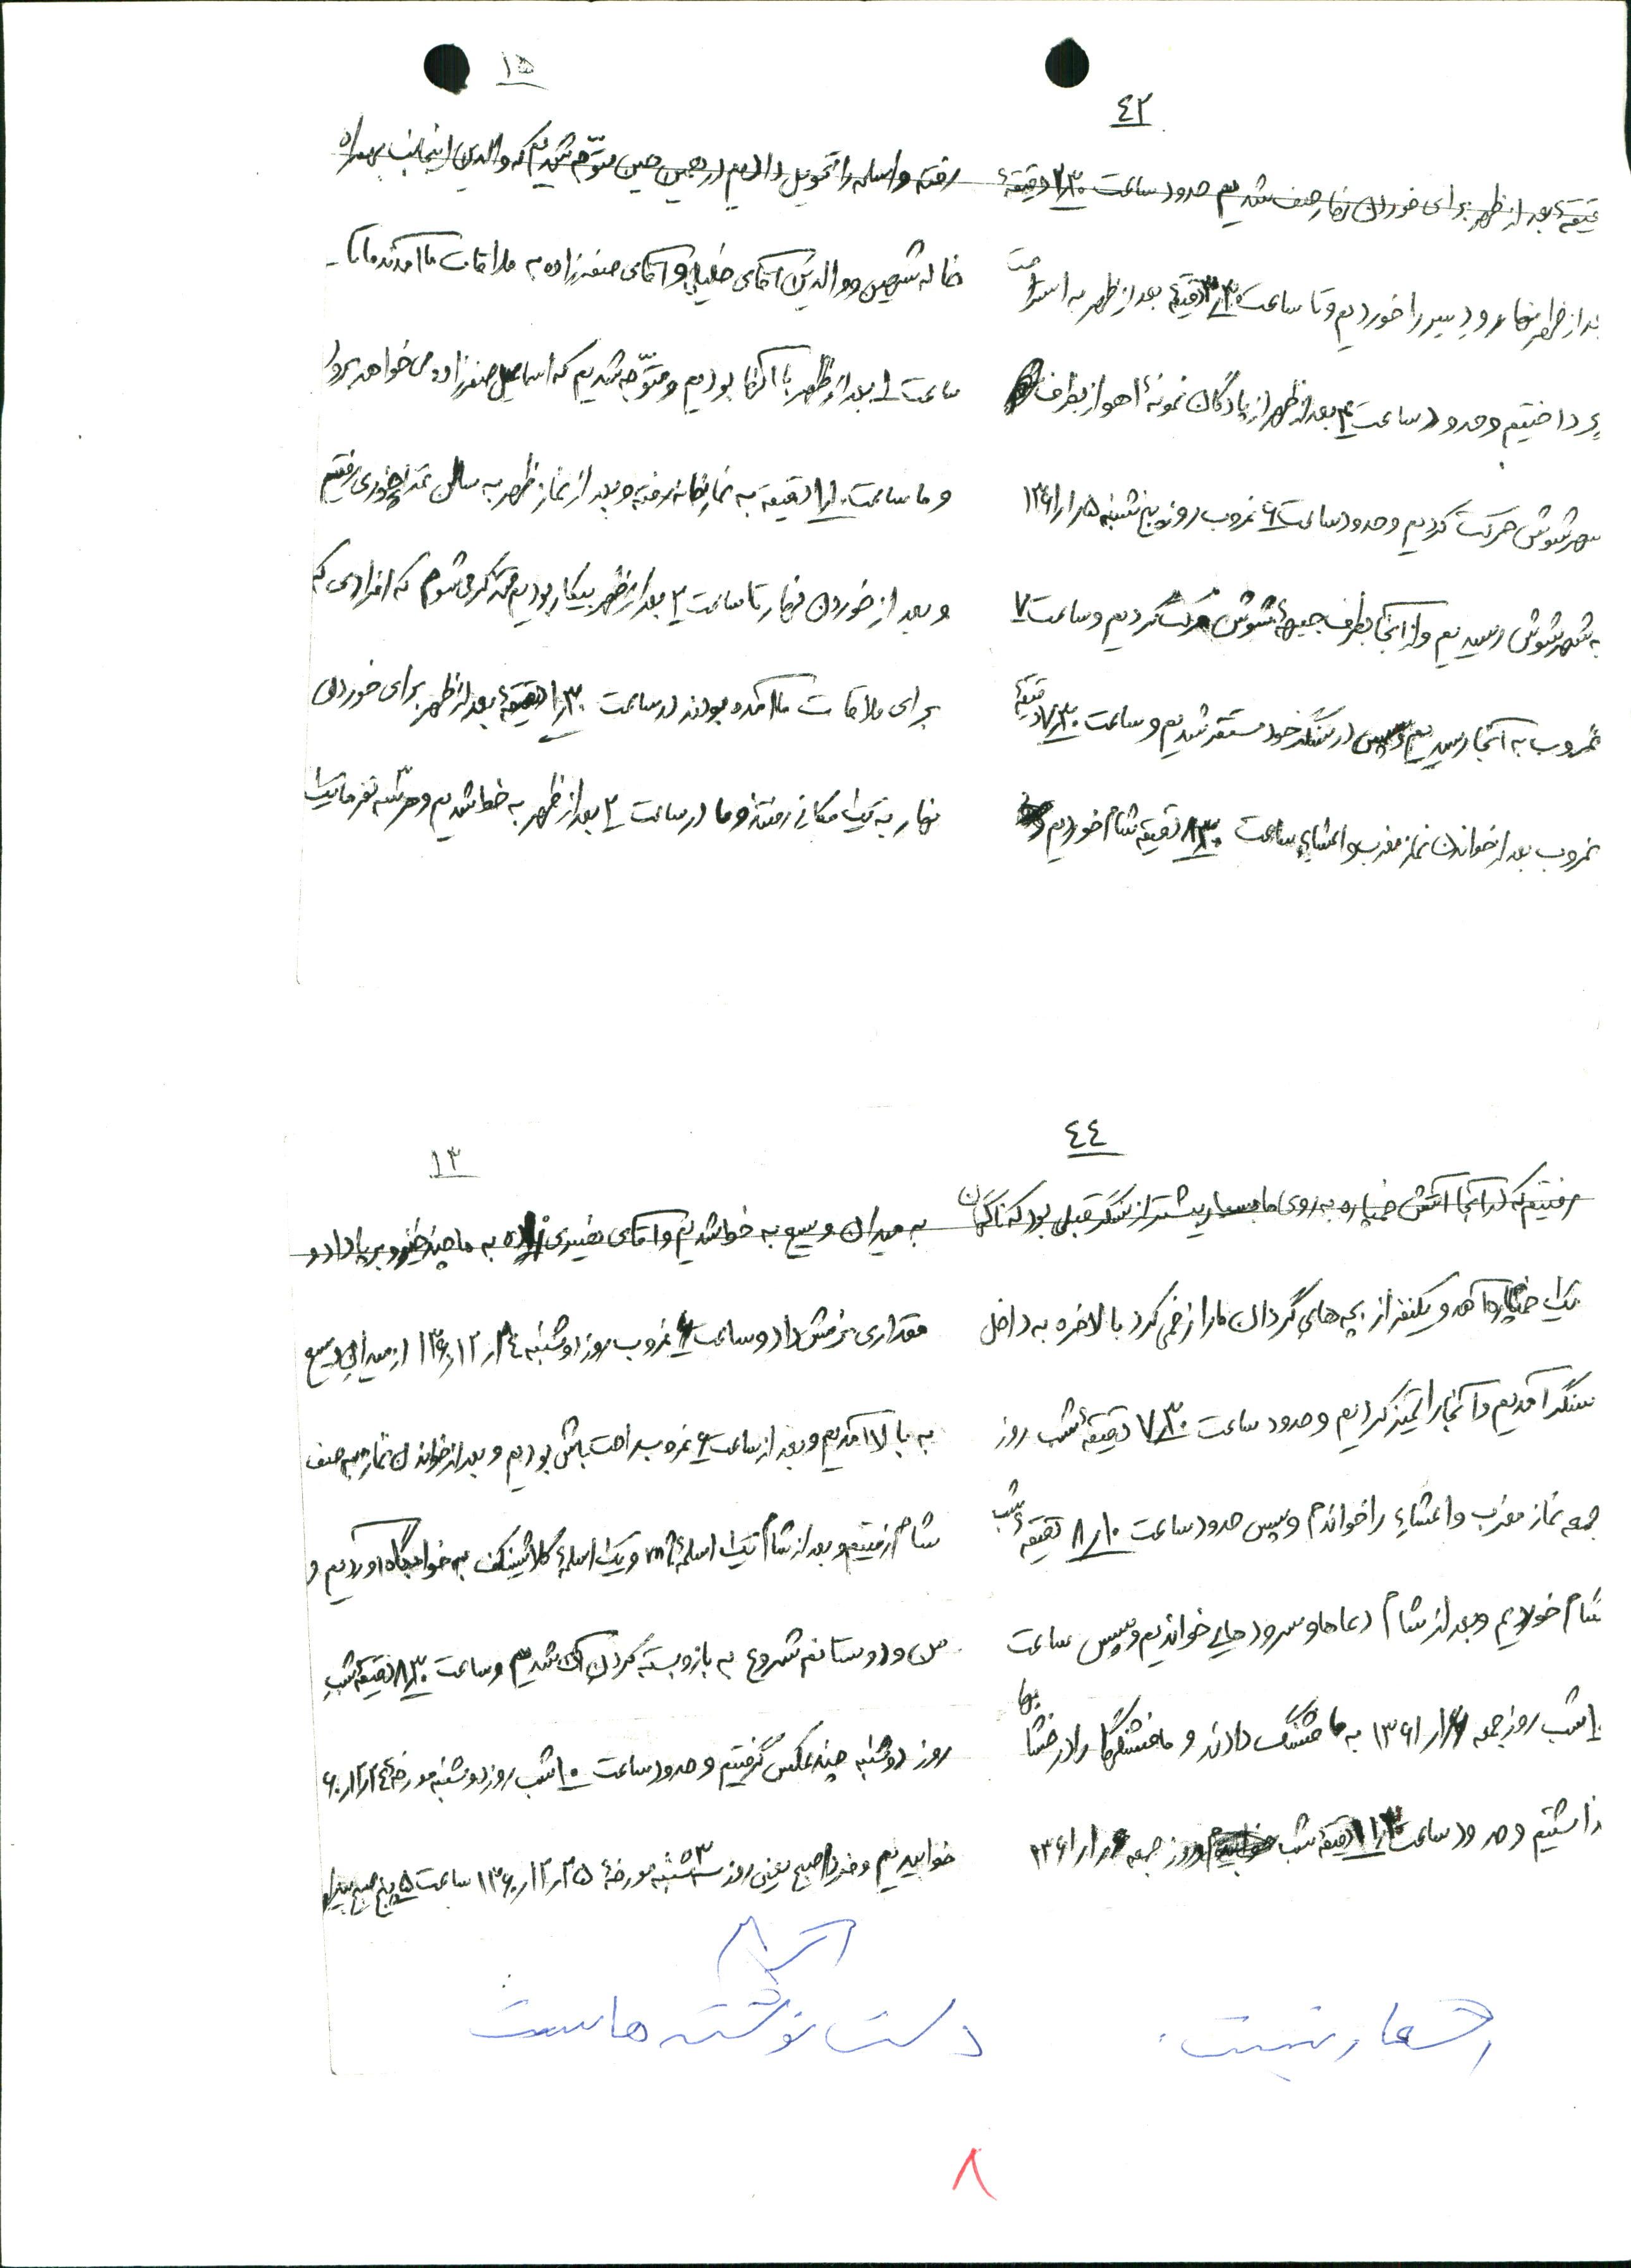 ٤٢
دقیقهٔ بعد از ظهر برای خوردن نهار صف شدیم حدود ساعت ۲٫۳۰ دقیقهٔ
بعد از ظهر نهار و دسر را خوردیم و تا ساعت ۳٫۳۰ دقیقهٔ بعد از ظهر به استراحت
پرداختیم و حدود ساعت ۴ بعد از ظهر از پادگان نمونهٔ اهواز بطرف
شهر شوش حرکت کردیم و حدود ساعت ۶ غروب روز پنج شنبه ۱۳۶۱/۱/۵
به شهر شوش رسیدیم و از آنجا بطرف جبههٔ شوش حرکت کردیم و ساعت ۷
غروب به آنجا رسیدیم و سپس در سنگر خود مستقر شدیم و ساعت ۷٫۳۰ دقیقهٔ
غروب بعد از خواندن نماز مغرب و اعشاءِ ساعت ۸٫۳۰ دقیقه شام خوردیم و
۱۵
رفته و اسلحه را تحویل دادیم در همین حین متوّجه شدیم که والدین اینجانب بهمراه
خاله شهین و والدین آقای خلیلی و آقای صفرزاده به ملاقات ما آمدند ما تا
ساعت ۱ بعد از ظهر با آنها بودیم و متوّجه شدیم که اسماعیل صفرزاده می خواهد برود
و ما ساعت ۱٫۱۰ دقیقه به نمازخانه رفته و بعد از نماز ظهر به سالن غذاخوری رفتیم
و بعد از خوردن نهار تا ساعت ۲ بعد از ظهر بیکار بودیم متذکر می شوم که افرادی که
برای ملاقات ما آمده بودند در ساعت ۱٫۳۰ دقیقهٔ بعد از ظهر برای خوردن
نهار به یک مکانی رفتند و ما در ساعت ۲ بعد از ظهر به خط شدیم و هر سّه نفر ما یک
٤٤
رفتیم که در آنجا آتش خمپاره به روی ما بسیار بیشتر از سنگر قبلی بود که ناگهان
یک خمپاره آمد و یکنفر از بچه های گردان ما را زخمی کرد بالاخره به داخل
سنگر آمدیم و آنجا را تمیز کردیم و حدود ساعت ۷٫۳۰ دقیقهٔ شب روز
جمعه نماز مغرب و اعشاءِ را خواندم و سپس حدود ساعت ۸٫۱۰ دقیقهٔ شب
شام خوردیم و بعد از شام دعاها و سرودهایی خواندیم و سپس ساعت
۱۰ شب روز جمعه ۱۳۶۱/۱/۶ به ما فشنگ دادند و ما فشنگها را در خشابها
گذاشتیم و حدود ساعت ۱۱٫۳۰ دقیقهٔ شب روز جمعه ۱۳۶۱/۱/۶
۱۳
به میدان وسیع به خط شدیم و آقای به ما چند خیز و برپا داد و
مقداری نرمش داد و ساعت ۶ غروب روز دوشنبه ۱۳۶۰/۱۲/۲٤ از میدان وسیع
به بالا آمدیم و بعد از ساعت ۶ غروب راحت باش بودیم و بعد از خواندن نماز به صف
شام رفتیم و بعد از شام یک اسلحهٔ و یک اسلحهٔ کلاشینکف به خوابگاه آوردیم و
من و دوستانم شروع به باز و بسته کردن آن شدیم و ساعت ۸٫۳۰ دقیقهٔ شب
روز دوشنبه چند عکس گرفتیم و حدود ساعت ۱۰ شب روز دوشنبه مورخهٔ ۶۰/۱۲/۲٤
خوابیدیم و فردا صبح یعنی روز سه شنبه مورخهٔ ۱۳۶۰/۱۲/۲۵ ساعت ۵ پنج صبح بیدار
اشعار نیست.
دست نوشته هاست
۸